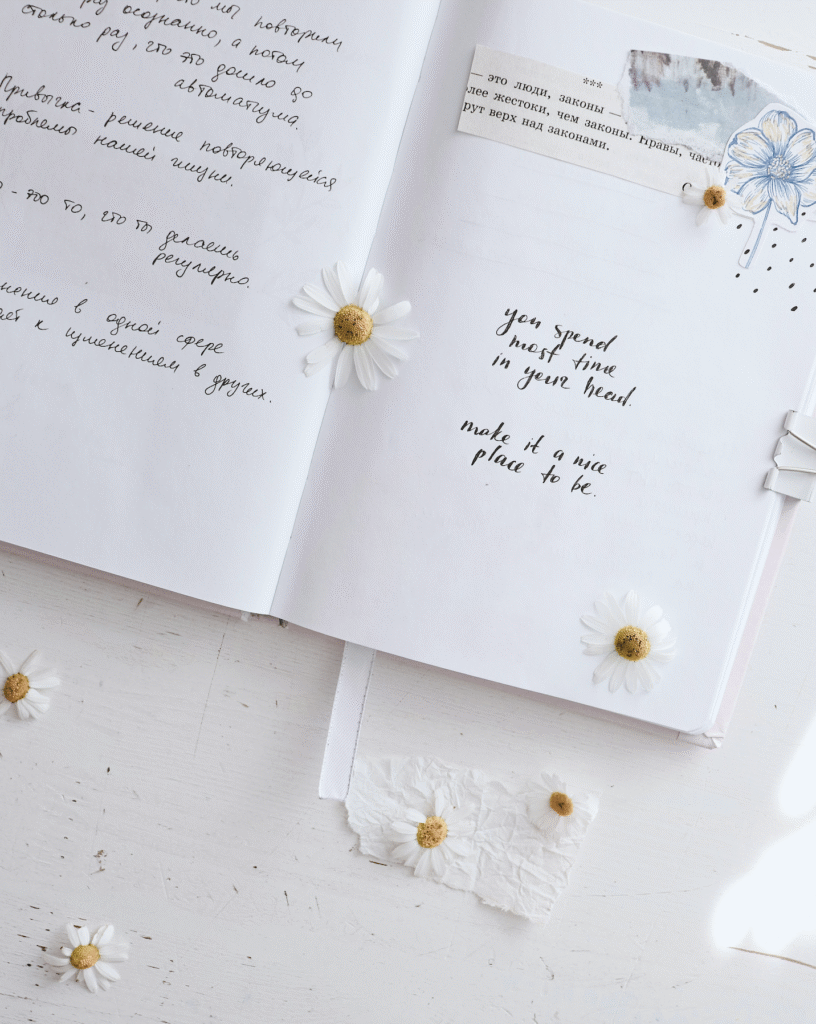 мы повторили
раз осознанно, а потом
столько раз, что это дошло до
автоматизма.
Привычка - решение повторяющейся
проблемы нашей жизни.
- это то, что ты делаешь
регулярно.
в одной сфере
к изменениям в других.
***
— это люди, законы —
лее жестоки, чем законы. Нравы, часто
рут верх над законами.
you spend
most time
in your head.
make it a nice
place to be.